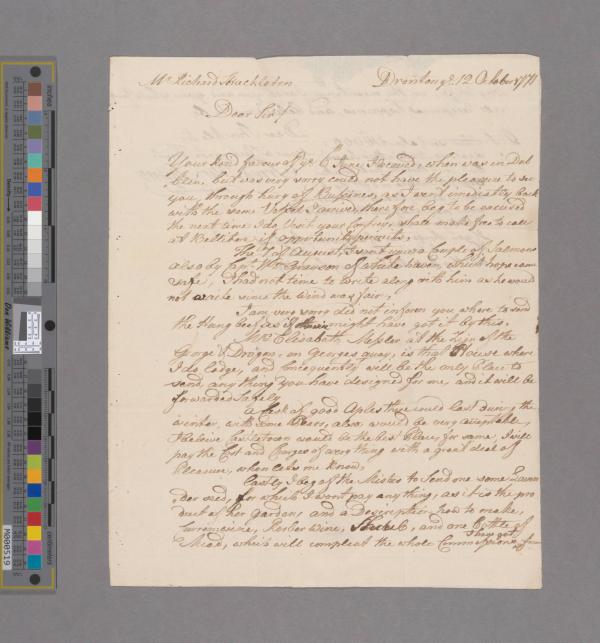 Mr Richard Shackleton
Dronton ye. 12 October 1771
Dear Sir,
Your kind favour of ye 6th June I received, when was in Dub
blin, but was very sorry could not have the pleasure to see
you, through hurry of Bussines, as I went imediatly back
with the same Vessel I arrived, therefore beg to be excused
the next time I do Visit your Contrey, shale make free to call
at Bellitore if opportunity permits.
The of August, I sent you a couple of Salmons
also by Capt. Wm. of white haven, which hope came
safe, I had not time to write along with him as he would
not waite since the wind was fair,
I am very sorry did not inform you where to send
the Hung beef, as if might have got it by this.
Mrs Elisabeth at the Sign of the
George & Dragon, on Georges quay, is the House where
I do lodge, and Consequently will be the only Place to
send any thing you have designed for me, and it will be
forwarded Safely
A Cask of good Aples those could last during the
winter, with some Pears, also, would be very acceptable,
I beleive would be the best Place, for same, I will
pay the Cost and Charges of every thing with a great deal of
Pleasure, when lets me know,
Lastly I beg of the Mistres to Send me some Laven
der seed, for which I wont pay any thing, as it is the pro
duct of her Garden, and a Description how to make,
Currenwine, Wine, &c, and one Bottle of
Mead, which will compleat the whole Commissions
They got
inches
centimetres
Don Williams
M000519